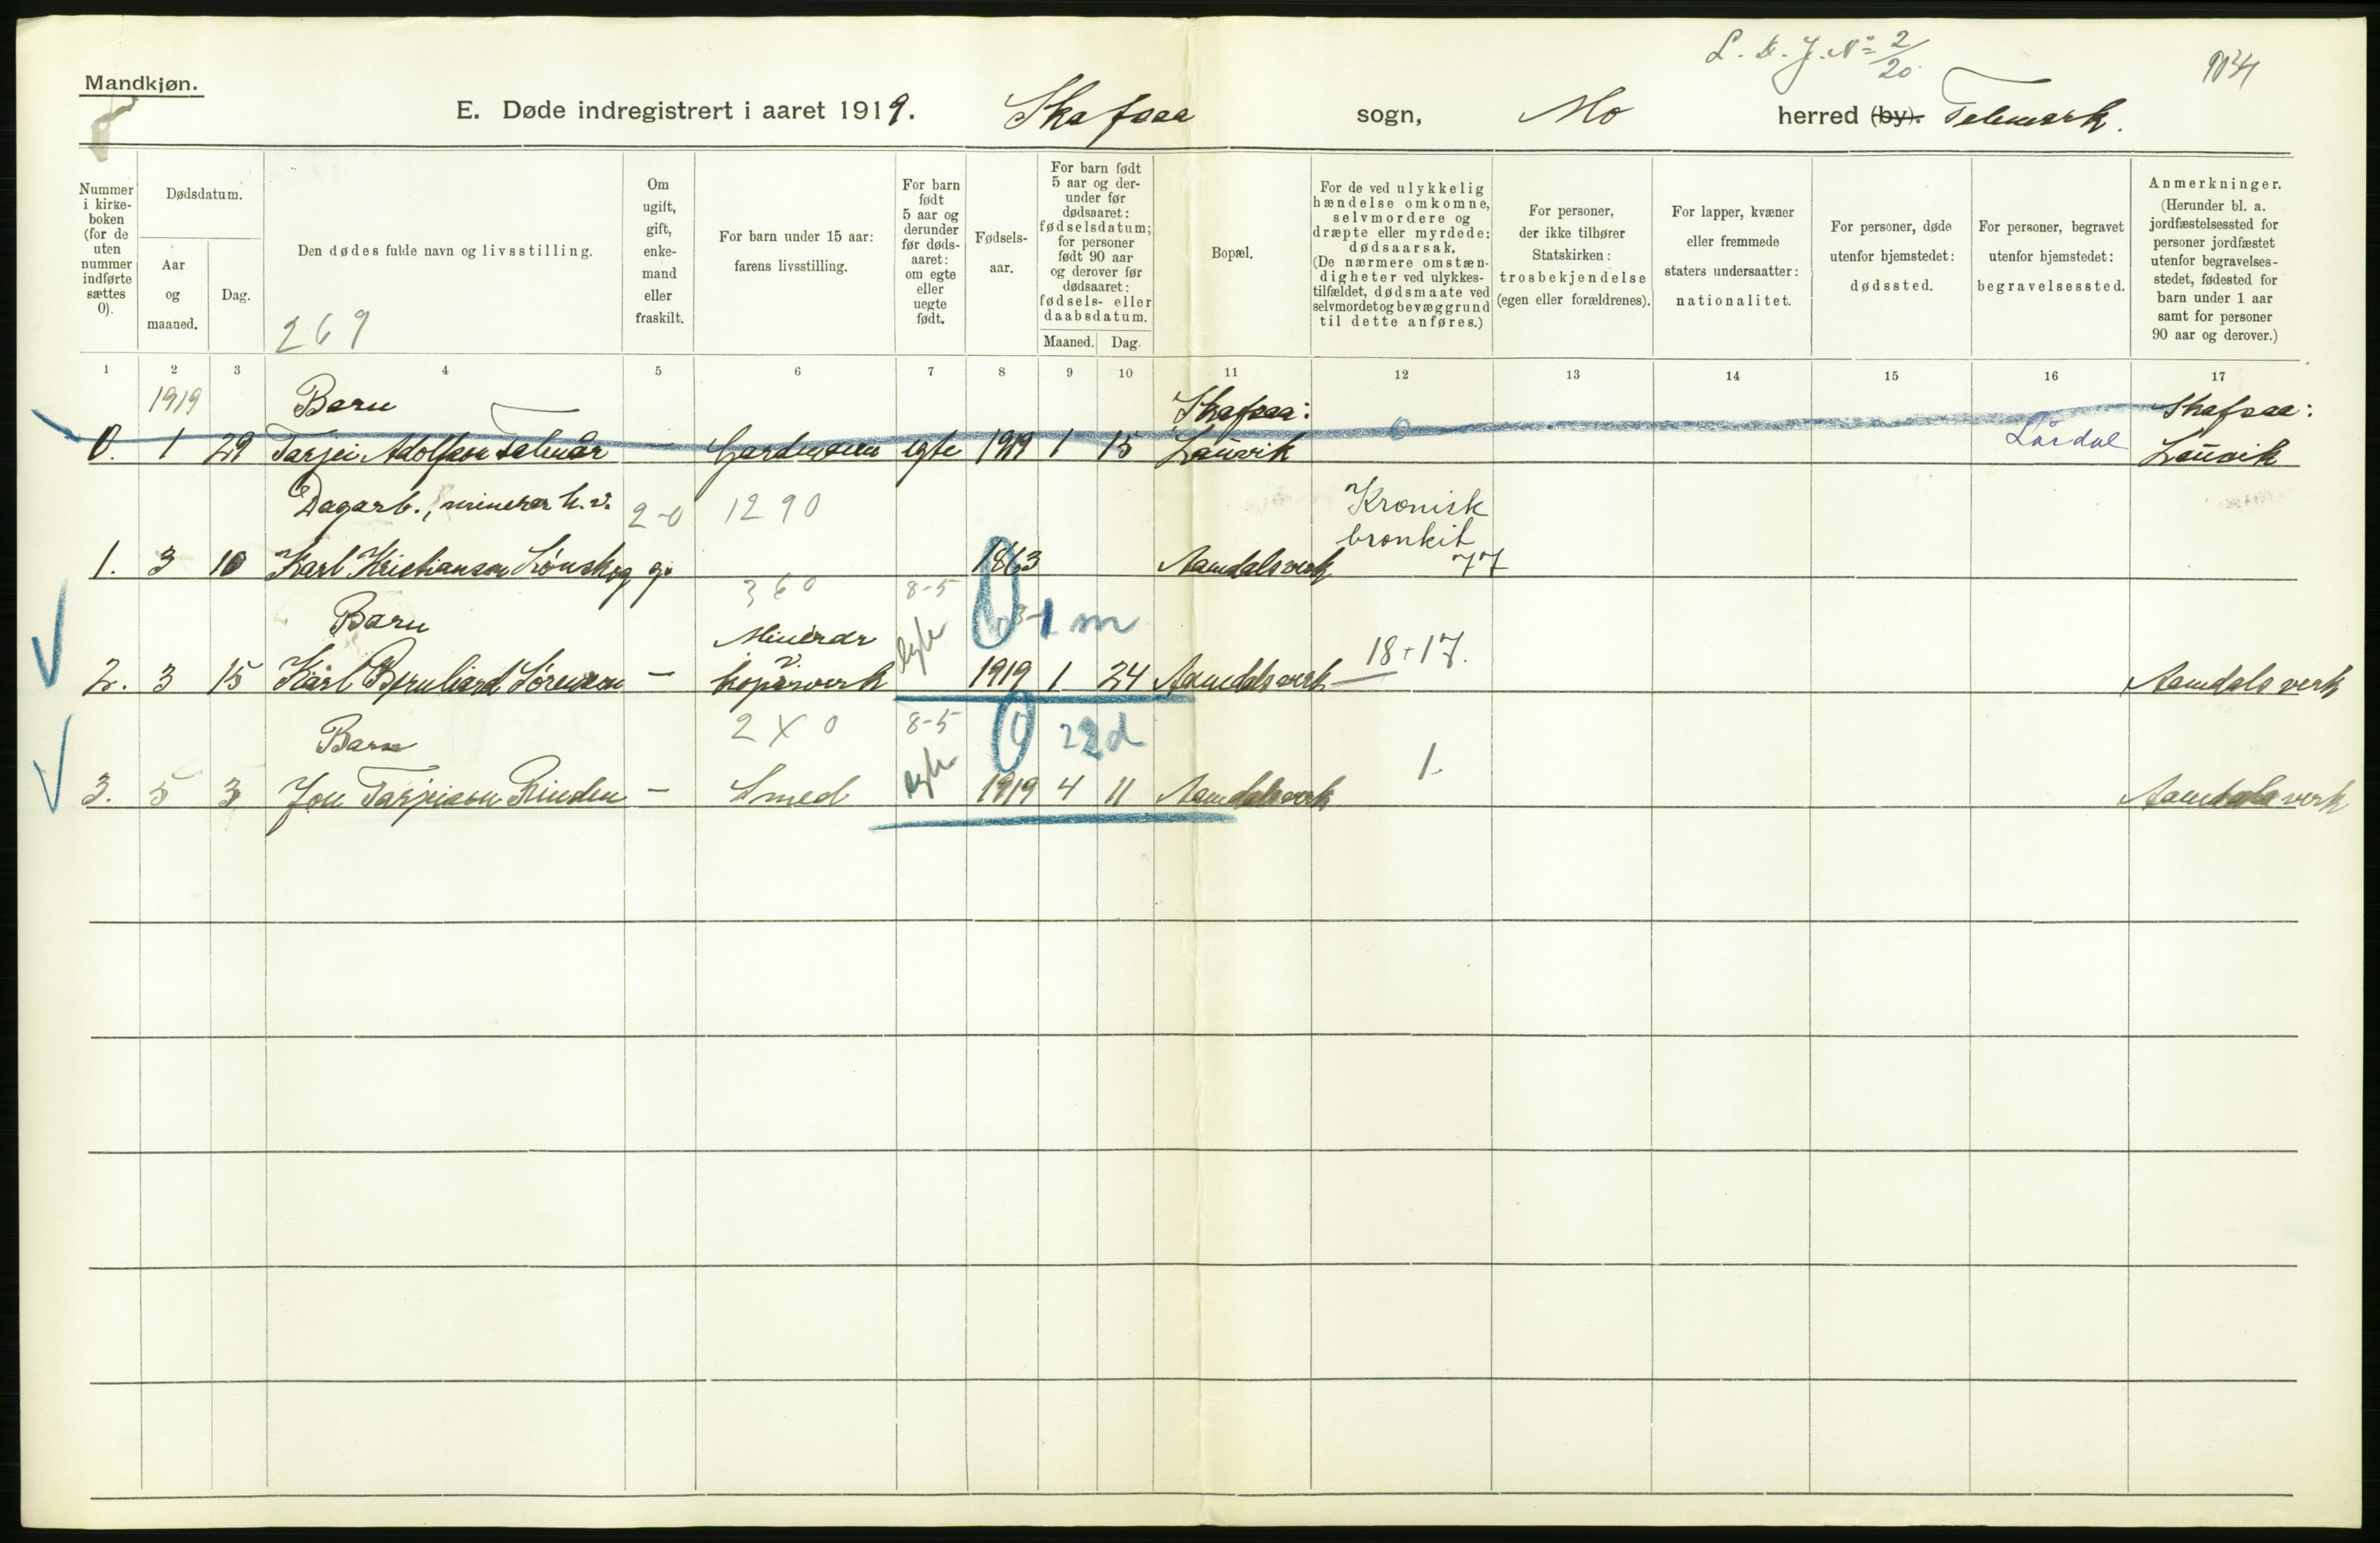 L. D. J. № 2/20
Mandkjøn.
E. Døde indregistrert i aaret 1919. Skafsaa sogn, Mo herred (by). Telemark.
Nummer i kirkeboken (for de uten nummer indførte sættes 0).
Dødsdatum.
Aar og maaned.
Dag.
Den dødes fulde navn og livsstilling.
269
Om ugift, gift, enkemand eller fraskilt.
For barn under 15 aar: farens livsstilling.
For barn født 5 aar og derunder før dødsaaret: om egte eller uegte født.
Fødselsaar.
For barn født 5 aar og derunder før dødsaaret: fødselsdatum; for personer født 90 aar og derover før dødsaaret: fødsels- eller daabsdatum.
Maaned. Dag.
Bopæl.
For de ved ulykkelig hændelse omkomne, selvmordere og dræpte eller myrdede: dødsaarsak. (De nærmere omstændigheter ved ulykkestilfældet, dødsmaate ved selvmordet og bevæggrund til dette anføres.)
For personer, der ikke tilhører Statskirken: trosbekjendelse (egen eller forældrenes).
For lapper, kvæner eller fremmede staters undersaatter: nationalitet.
For personer, døde utenfor hjemstedet: dødssted.
For personer, begravet utenfor hjemstedet: begravelsessted.
Anmerkninger. (Herunder bl. a. jordfæstelsessted for personer jordfæstet utenfor begravelsesstedet, fødested for barn under 1 aar samt for personer 90 aar og derover.)
1 2 3 4 5 6 7 8 9 10 11 12 13 14 15 16 17
1919 Barn Skafsaa: Skafsaa:
0. 1 29 Tarjei Adolfson — Gardmann egte 1919 1 15 Lauvik 0 Lårdal Lauvik
Dagarb., minerer k.v. 2-0 1290 Kronisk
bronkit
1. 3 10 Karl Kristiansen Lønskog g. 1863 Aamdalsverk 77
360 8-5
Barn Minerar egte 1 m
2. 3 15 Karl Bernhard Sørensen — koparverk 1919 1 24 Aamdalsverk 18+17. Aamdalsverk
2 X 0 8-5 0 22 d
Barn
3. 5 3 Jon Tarjeison Rinden — Smed egte 1919 4 11 Aamdalsverk 1. Aamdalsverk